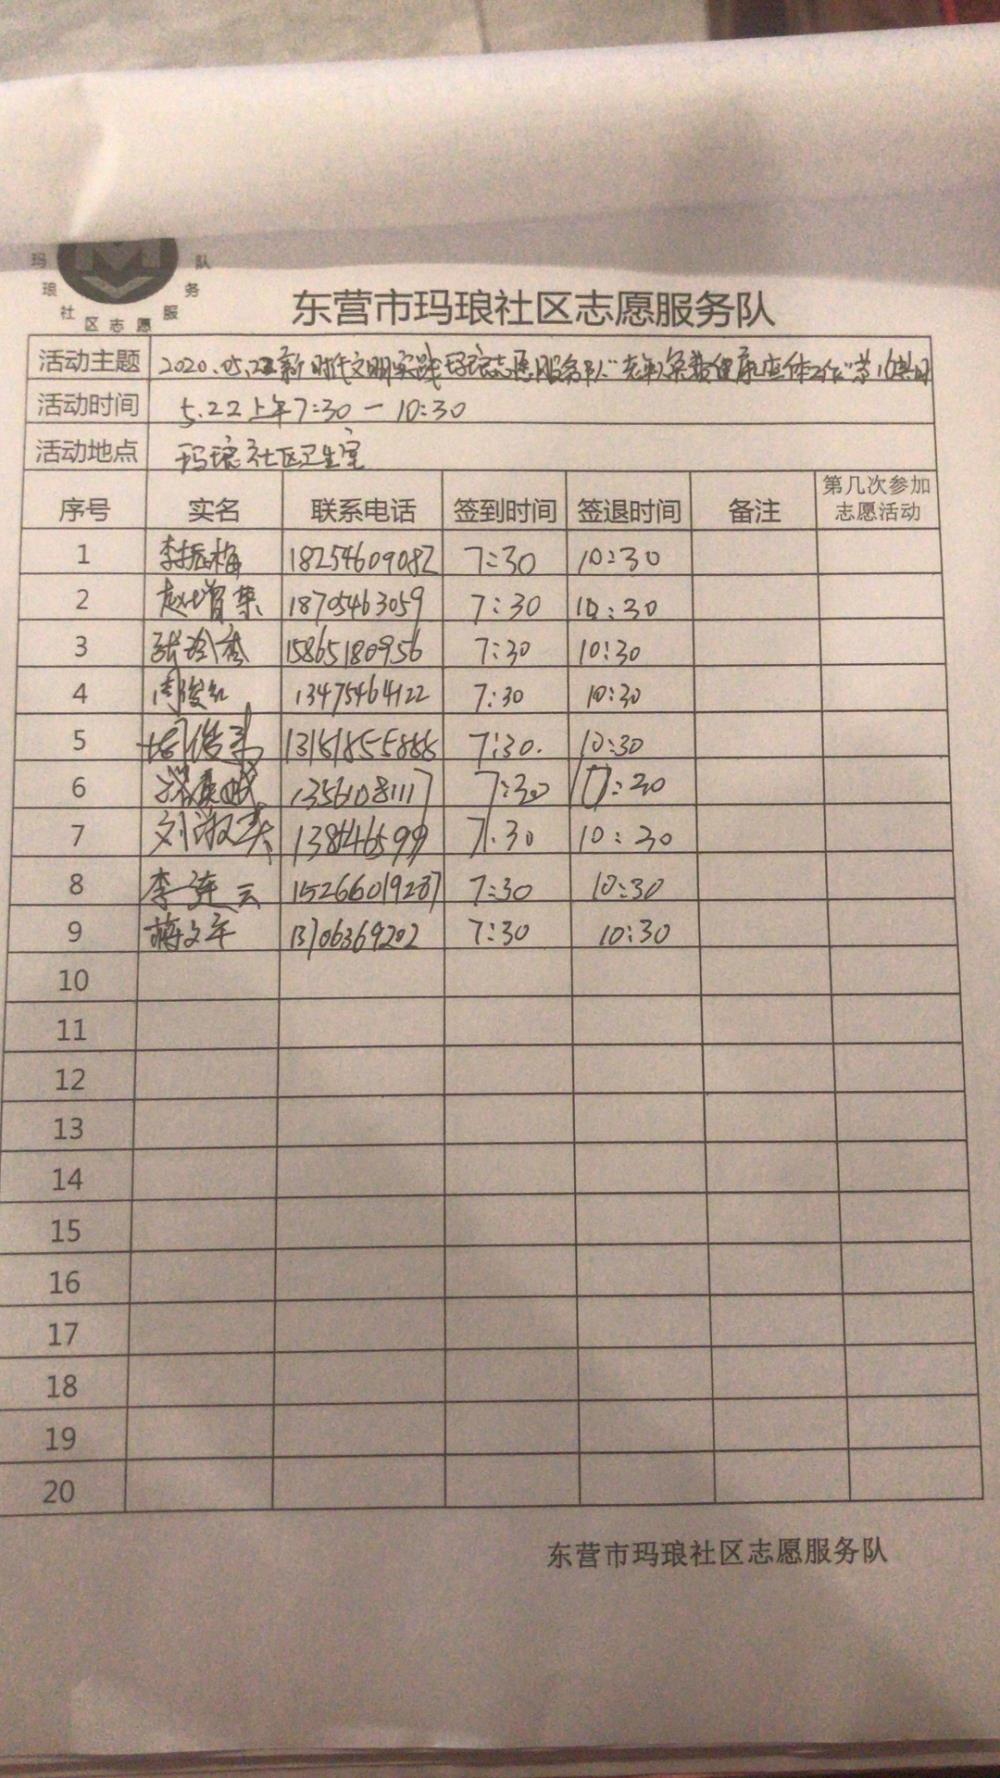 玛琅社区志愿服务队
东营市玛琅社区志愿服务队
活动主题 2020.05.22新时代文明实践玛琅志愿服务队"老年人免费健康查体工作"第1期
活动时间 5.22上午7:30-10:30
活动地点 玛琅社区卫生室
序号 实名 联系电话 签到时间 签退时间 备注 第几次参加志愿活动
1 李振梅 18254609082 7:30 10:30
2 赵增荣 18705463059 7:30 10:30
3 张玲秀 15865180956 7:30 10:30
4 周俊红 13475464122 7:30 10:30
5 7:30. 10:30
6 13561081117 7:30
7 刘淑英 7:30 10:30
8 李莲云 15266019287 7:30 10:30
9 蒋文军 13706369202 7:30 10:30
10
11
12
13
14
15
16
17
18
19
20
东营市玛琅社区志愿服务队